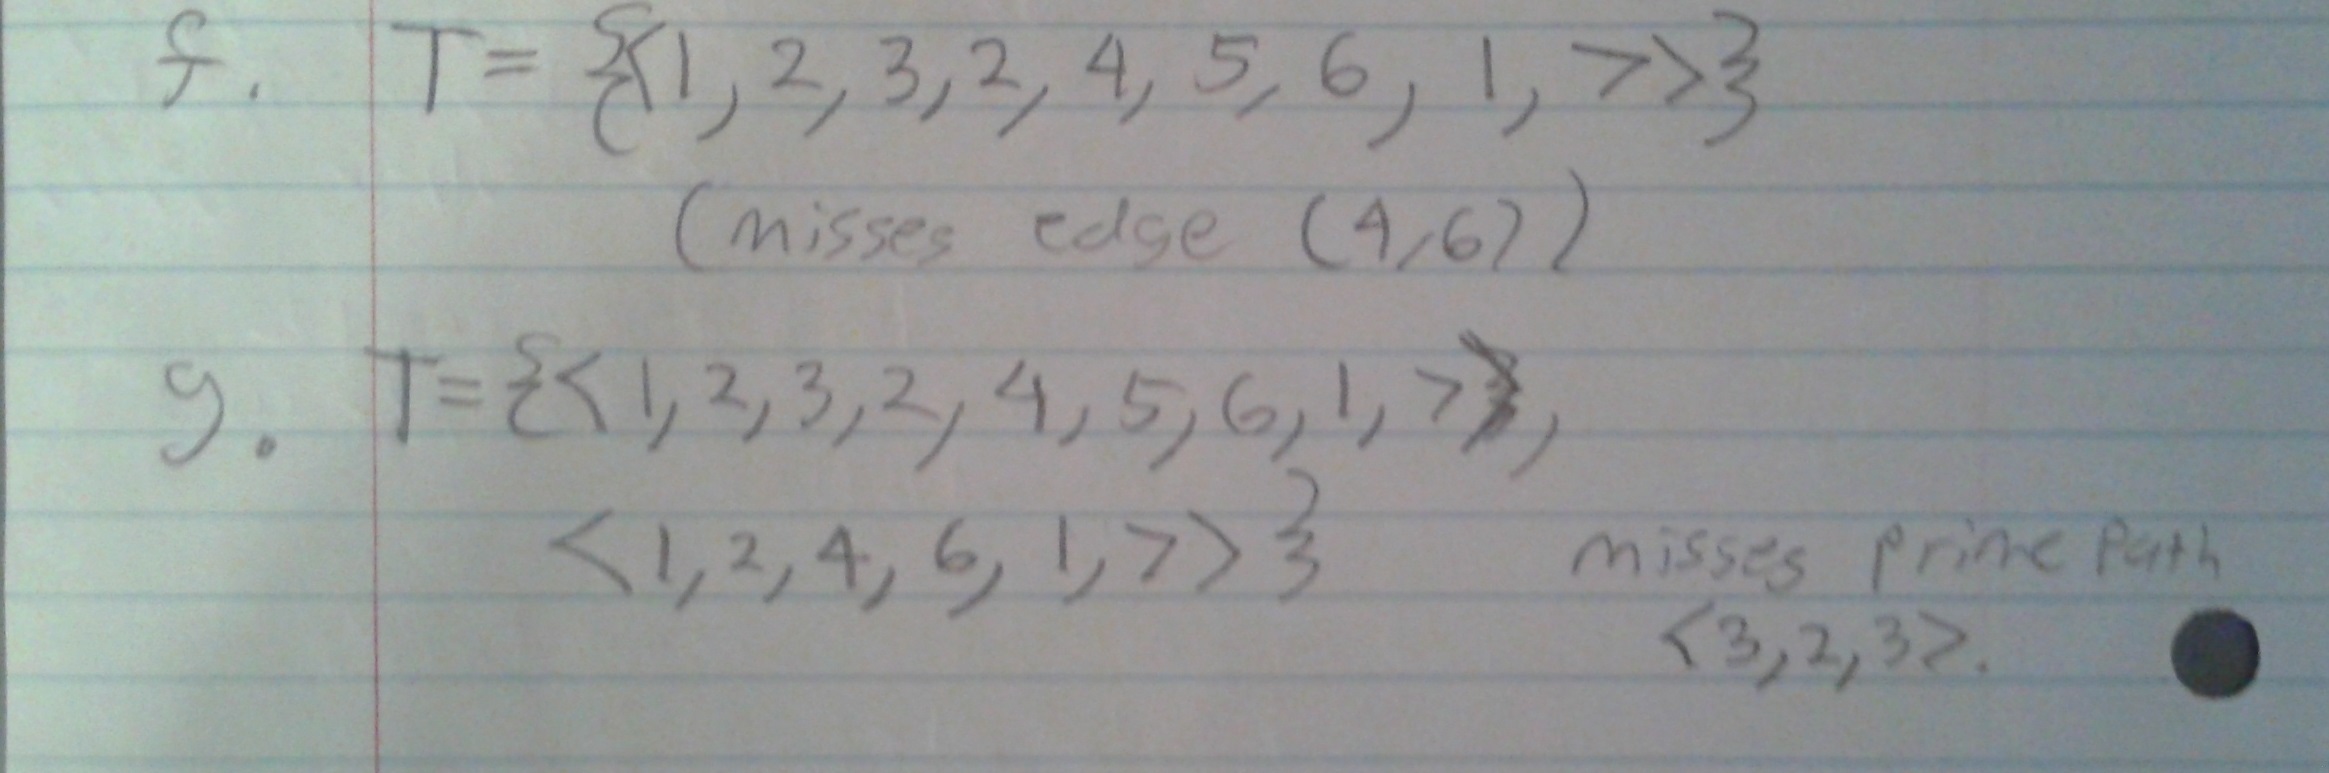 f. T = {<1, 2, 3, 2, 4, 5, 6, 1, 7>}
(misses edge (4,6))
g. T = {<1, 2, 3, 2, 4, 5, 6, 1, 7>,
<1, 2, 4, 6, 1, 7>}
misses prime path
<3, 2, 3>.